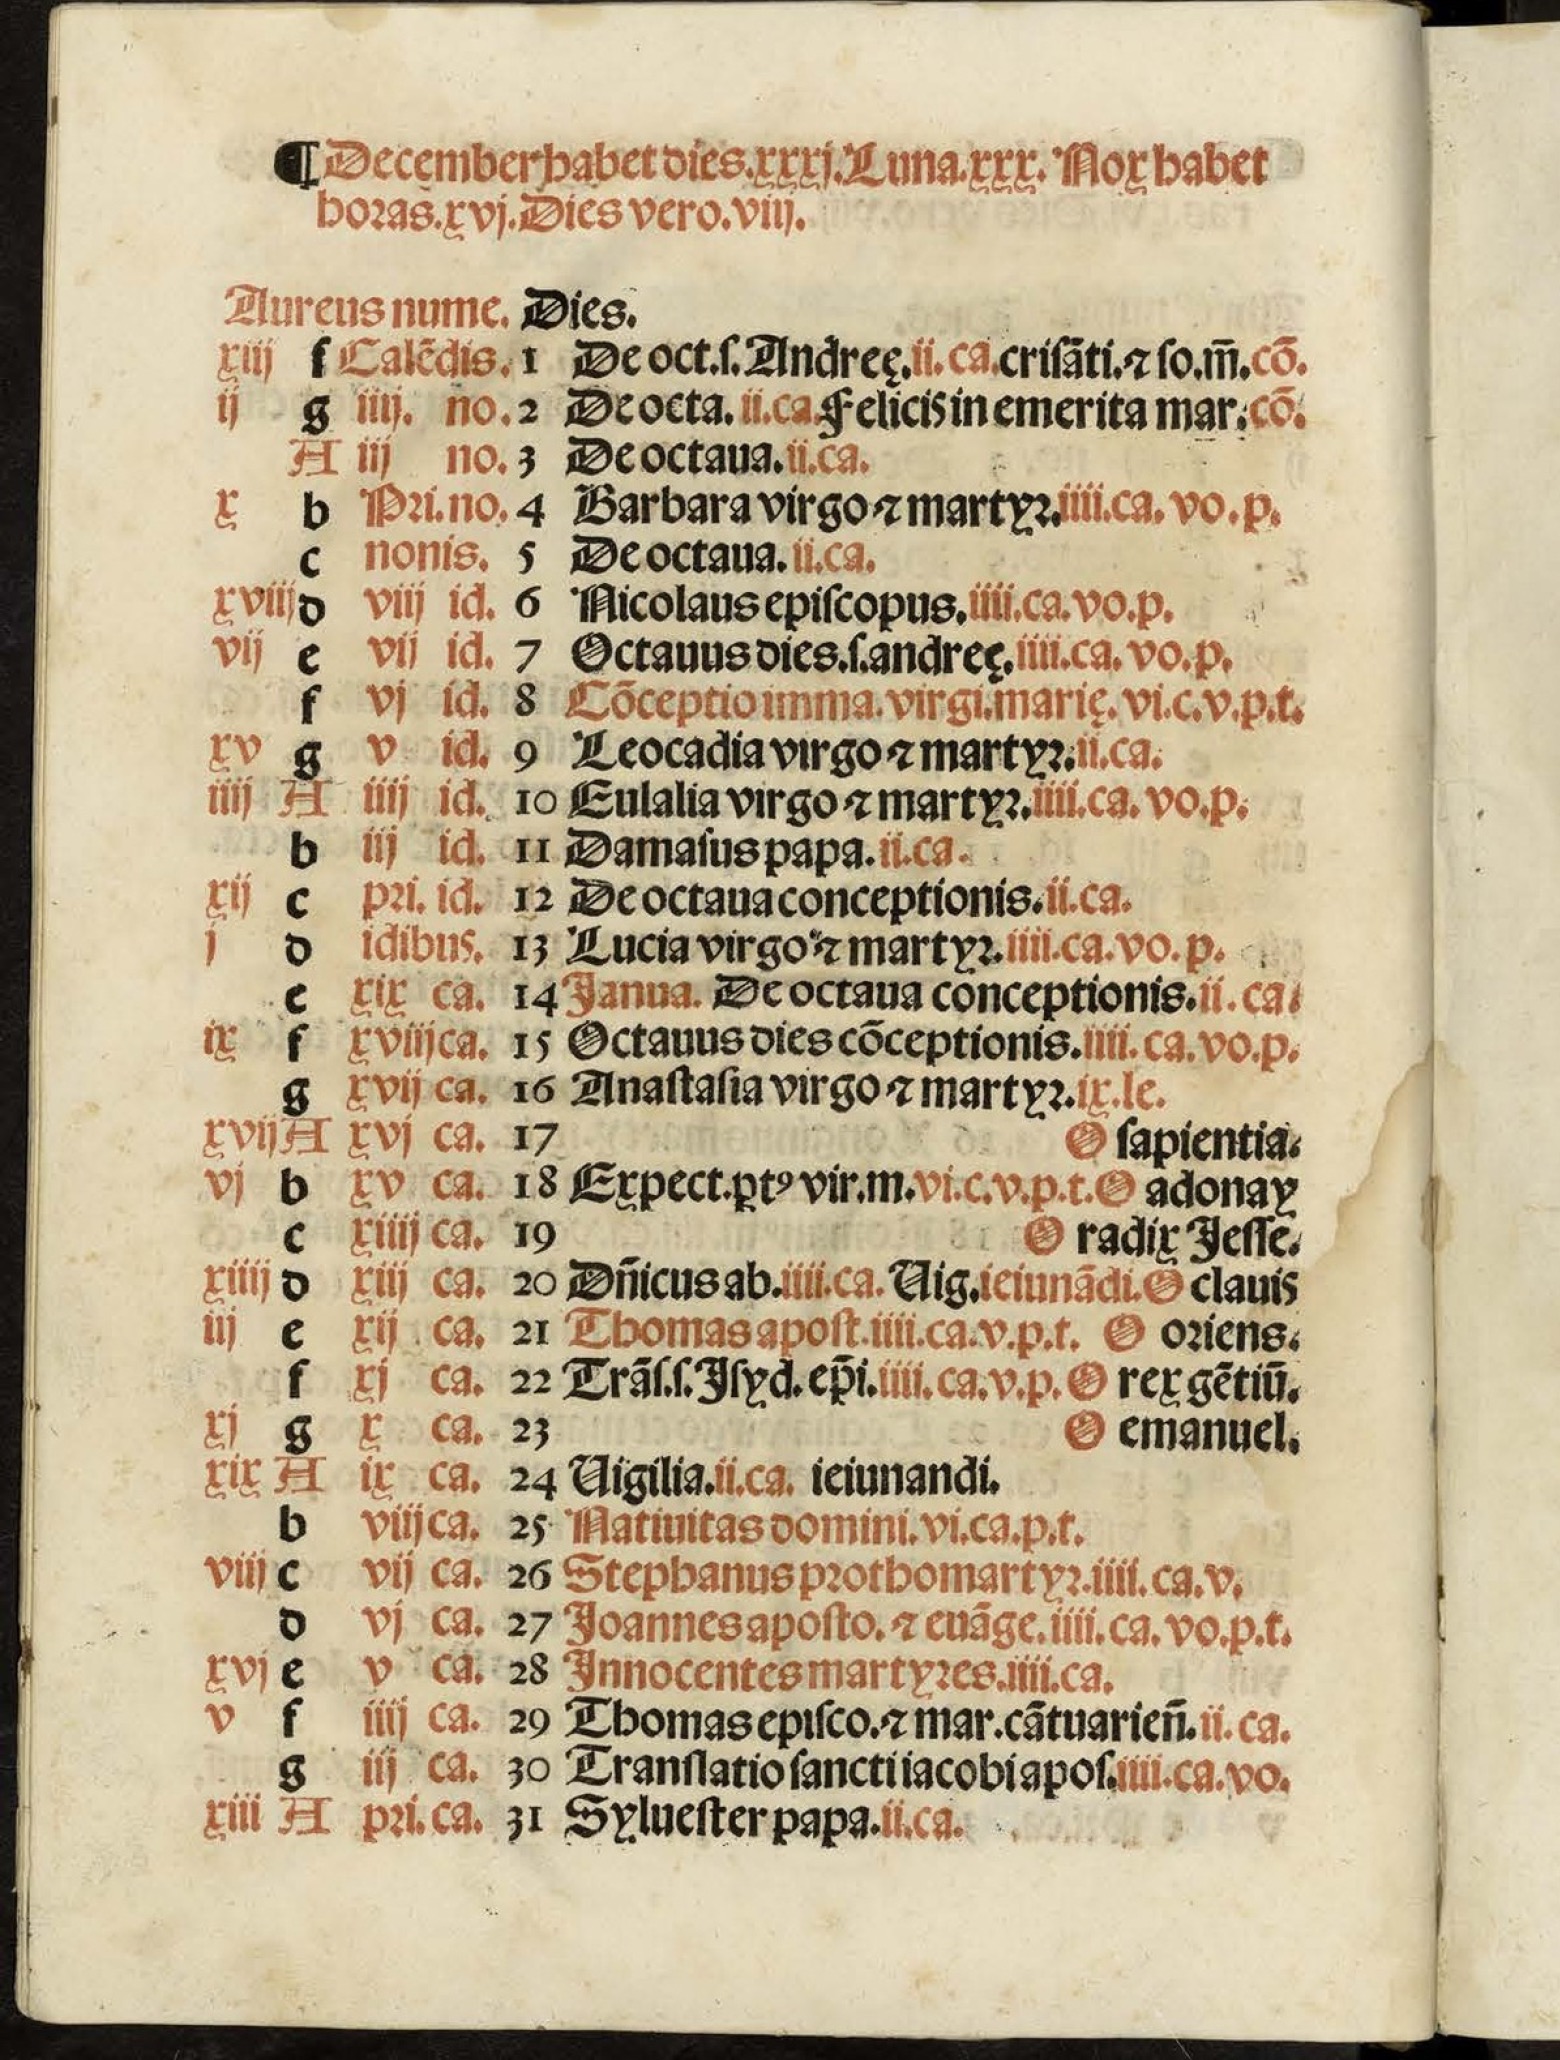 ¶ December habet dies.xxxj.Luna.xxx. Nox habet
horas.xvj.Dies vero.viij.
Aureus nume. Dies.
xiij f Calēdis. 1 De oct.ſ.Andreę.ii.ca.criſāti.⁊ ſo.m̄.cō.
ij g iiij. no. 2 De octa.ii.ca.Felicis in emerita mar.cō.
A iij no. 3 De octaua.ii.ca.
x b Pri.no. 4 Barbara virgo ⁊ martyꝛ.iiii.ca.vo.p.
c nonis. 5 De octaua.ii.ca.
xviij d viij id. 6 Nicolaus epiſcopus.iiii.ca.vo.p.
vij e vij id. 7 Octauus dies.ſ.andreę.iiii.ca.vo.p.
f vj id. 8 Cōceptio imma.virgi.marię.vi.c.v.p.t.
xv g v id. 9 Leocadia virgo ⁊ martyꝛ.ii.ca.
iiij A iiij id. 10 Eulalia virgo ⁊ martyꝛ.iiii.ca.vo.p.
b iij id. 11 Damaſus papa.ii.ca.
xij c pꝛi. id. 12 De octaua conceptionis.ii.ca.
j d idibus. 13 Lucia virgo ⁊ martyꝛ.iiii.ca.vo.p.
e xix ca. 14 Janua. De octaua conceptionis.ii.ca.
ix f xviij ca. 15 Octauus dies cōceptionis.iiii.ca.vo.p.
g xvij ca. 16 Anaſtaſia virgo ⁊ martyꝛ.ix.le.
xvij A xvj ca. 17 O ſapientia.
vj b xv ca. 18 Expect.ptꝰ vir.m.vi.c.v.p.t.O adonay
c xiiij ca. 19 O radix Jeſſe.
xiiij d xiij ca. 20 Dn̄icus ab.iiii.ca.Uig.ieiunādi.O clauis
iij e xij ca. 21 Thomas apoſt.iiii.ca.v.p.t. O oꝛiens.
f xj ca. 22 Trāſ.ſ.Jſyd.ep̄i.iiii.ca.v.p.O rex gētiū.
xj g x ca. 23 O emanuel.
xix A ix ca. 24 Uigilia.ii.ca. ieiunandi.
b viij ca. 25 Natiuitas domini.vi.ca.p.t.
viij c vij ca. 26 Stephanus pꝛothomartyꝛ.iiii.ca.v.
d vj ca. 27 Joannes apoſto.⁊ euāge.iiii.ca.vo.p.t.
xvj e v ca. 28 Innocentes martyꝛes.iiii.ca.
v f iiij ca. 29 Thomas epiſco.⁊ mar.cātuarien̄.ii.ca.
g iij ca. 30 Tranſlatio ſancti iacobi apoſ.iiii.ca.vo.
xiii A pꝛi.ca. 31 Sylueſter papa.ii.ca.